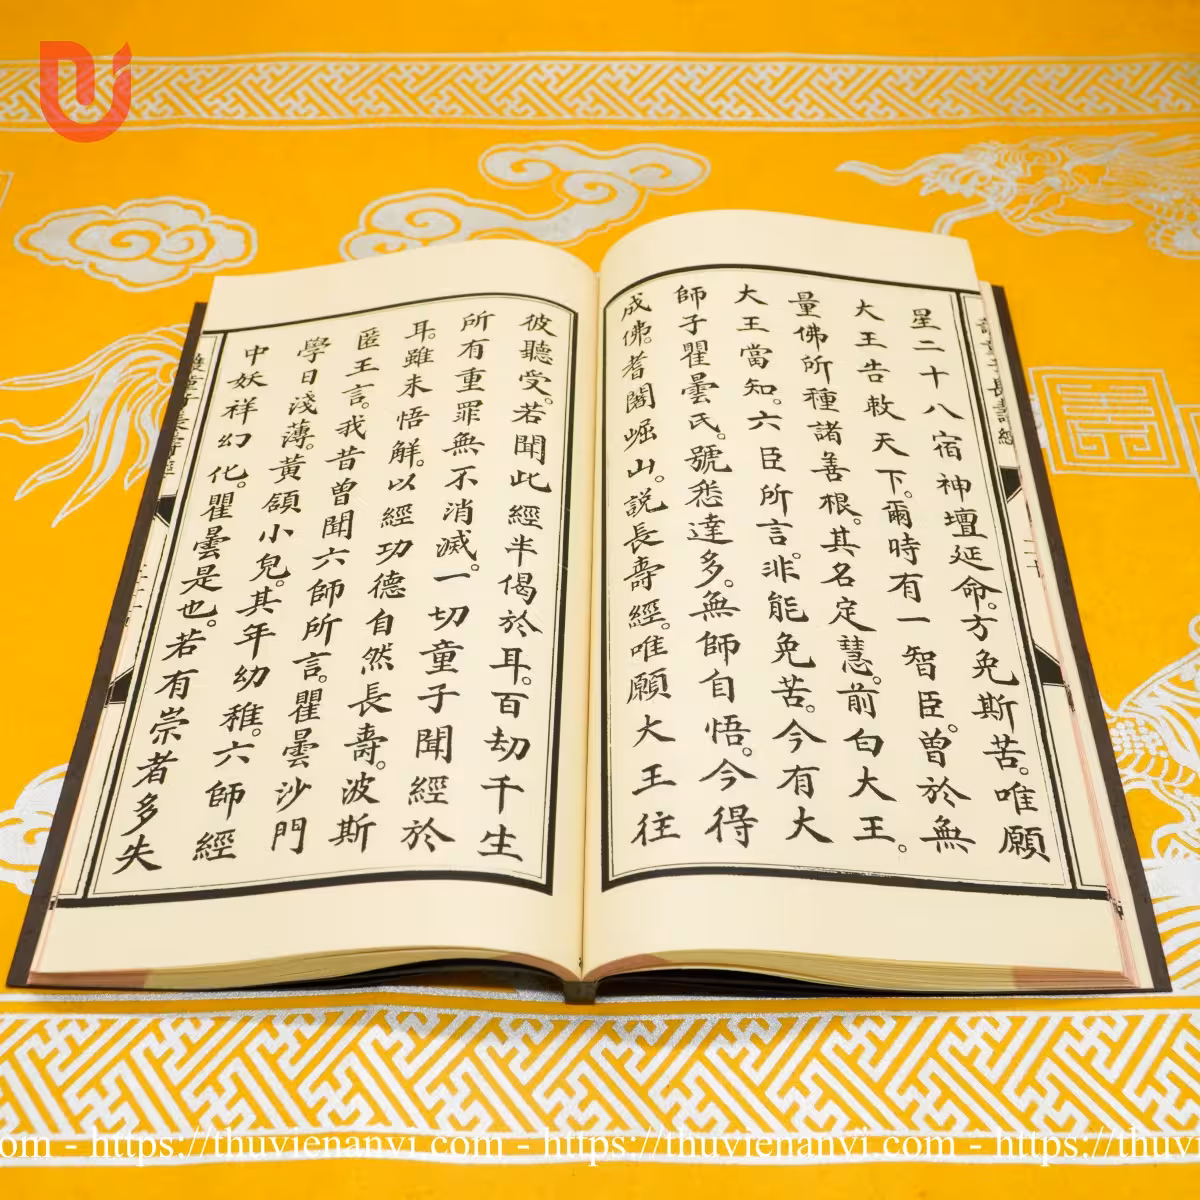 星二十八宿神壇延命。方免斯苦。唯願
大王告敕天下。爾時有一智臣。曾於無
量佛所種諸善根。其名定慧。前白大王。
大王當知。六臣所言。非能免苦。今有大
師子瞿曇氏。號悉達多。無師自悟。今得
成佛。耆闍崛山。說長壽經。唯願大王往
彼聽受。若聞此經半偈於耳。百劫千生
所有重罪無不消滅。一切童子聞經於
耳。雖未悟解。以經功德自然長壽。波斯
匿王言。我昔曾聞六師所言。瞿曇沙門
學日淺薄。黃頷小兒。其年幼稚。六師經
中妖祥幻化。瞿曇是也。若有崇者多失
om - https://thuvienanvi.com - https://thuvienanvi.com - https://thuvi